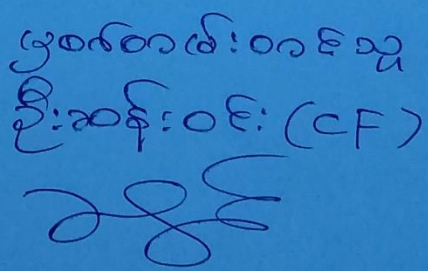 မှတ်တမ်းတင်သူ
ဦးဆန်းဝင်း (CF)